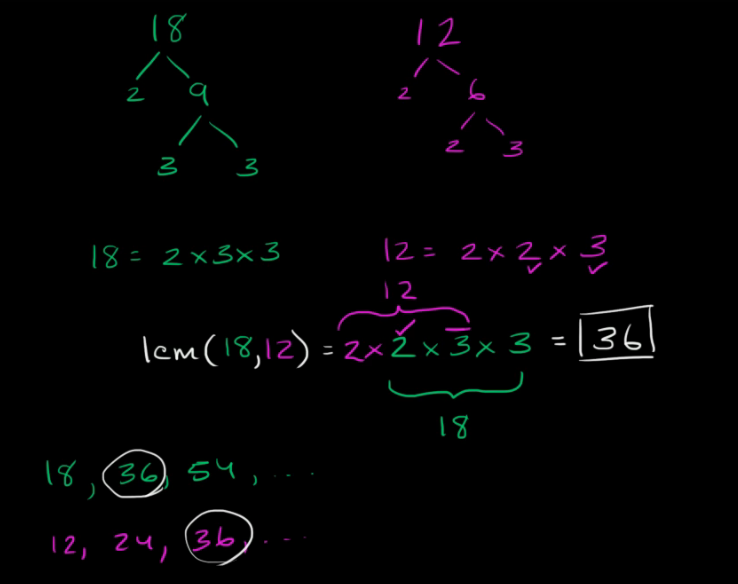 18 12
2 9 2 6
3 3 2 3
18 = 2 × 3 × 3 12 = 2 × 2 × 3
12
lcm(18,12) = 2 × 2 × 3 × 3 = 36
18
18, 36, 54, ...
12, 24, 36, ...